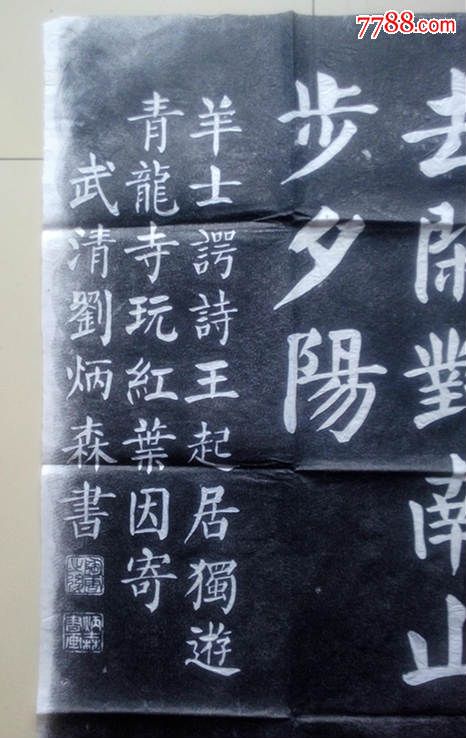 7788.com
去閑對南山
步夕陽
羊士諤詩王起居獨遊
青龍寺玩紅葉因寄
武清劉炳森書
炳森